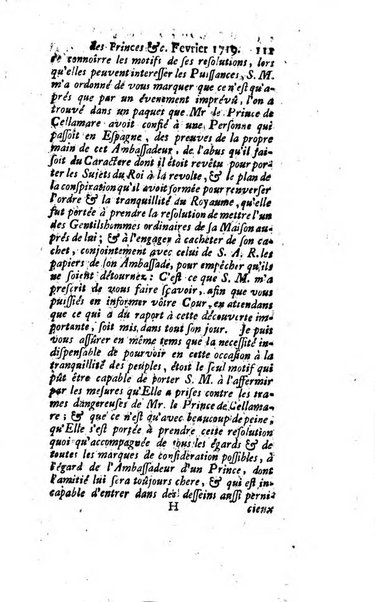 des Princes &c. Fevrier 1719. 111
de connoîrre les motifs de ses resolutions, lors
qu'elles peuvent interesser les Puissances, S. M.
m'a ordonné de vous marquer que ce n'est qu'a-
prés que par un évenement imprévû, l'on a
trouvé dans un paques que Mr le Prince de
Cellamare avoit confié à une Personne qui
passoit en Espagne, des preuves de la propre
main de cet Ambassadeur, de l'abus qu'il fai-
soit du Caractere dont il étoit revêtu pour por-
ter les Sujets du Roi à la revolte, & le plan de
la conspiration qu'il avoit formée pour renverser
l'ordre & la tranquillité du Royaume, qu'elle
fut portée à prendre la resolution de mettre l'un
des Gentilshommes ordinaires de sa Maison au-
prés de lui; & à l'engager à cacheter de son ca-
chet, conjointement avec celui de S. A. R. les
papiers de son Ambassade, pour empêcher qu'ils
ne soient détournez: C'est ce que S. M. m'a
prescrit de vous faire sçavoir, afin que vous
puissiés en informer vôtre Cour, en attendant
que ce qui a du raport à cette découverte im-
portante, soit mis dans tout son jour. Je puis
vous assurer en même tems que la necessité in-
dispensable de pourvoir en cette occasion à la
tranquilité des peuples, étoit le seul motif qui
pût être capable de porter S. M. à l'affermir
par les mesures qu'Elle a prises contre les tra-
mes dangereuses de Mr. le Prince de Cellama-
re; & que ce n'est qu'avec beaucoup de peine,
qu'Elle s'est portée à prendre cette resolution
quoi qu'accompagnée de tous les égards & de
toutes les marques de considération possibles, à
l'égard de l'Ambassadeur d'un Prince, dont
l'amitié lui sera toûjours chere, & qui est in-
capable d'entrer dans des desseins aussi perni-
H cieux